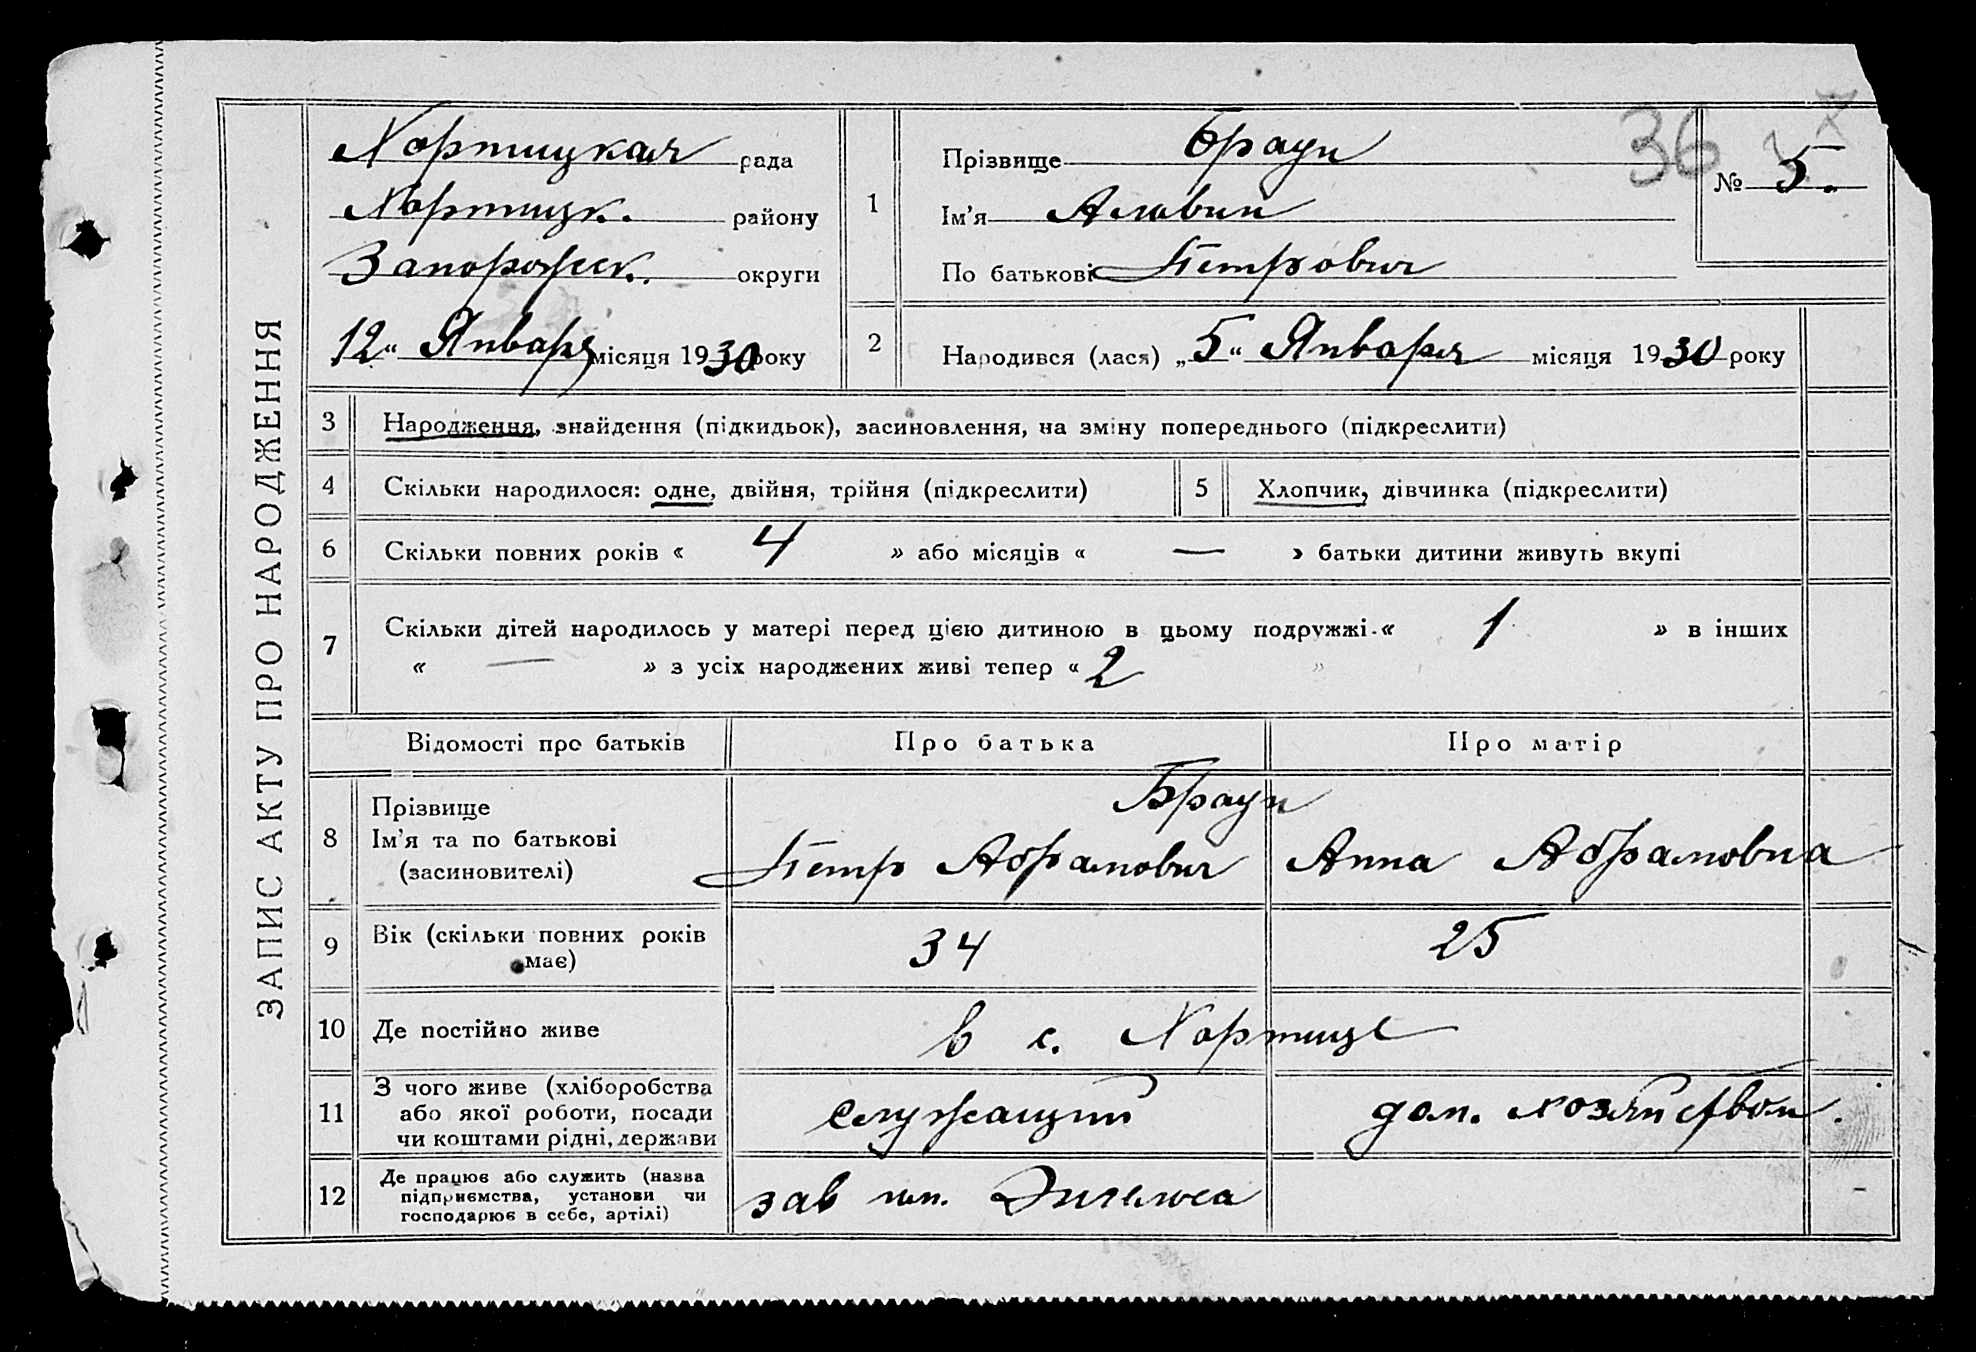 ЗАПИС АКТУ ПРО НАРОДЖЕННЯ
Хортицкая рада
Хортицк. району
Запорожск. округи
12 “ Января місяця 1930 року
1
Прізвище Браун
Ім’я
По батькові Петрович
36
№ 5.
2
Народився (лася) „5“ Января місяця 1930 року
3 Народження, знайдення (підкидьок), засиновлення, на зміну попереднього (підкреслити)
4 Скільки народилося: одне, двійня, трійня (підкреслити)
5 Хлопчик, дівчинка (підкреслити)
6 Скільки повних років « 4 » або місяців « — » батьки дитини живуть вкупі
7 Скільки дітей народилось у матері перед цією дитиною в цьому подружжі « 1 » в інших
« — » з усіх народжених живі тепер « 2 »
Відомості про батьків Про батька Про матір
8
Прізвище
Ім’я та по батькові
(засиновителі)
Браун
Петр Абрамович Анна Абрамовна
9
Вік (скільки повних років
має)
34 25
10 Де постійно живе в с. Хортице
11
З чого живе (хліборобства
або якої роботи, посади
чи коштами рідні, держави
служащий дом. хозяйством.
12
Де працює або служить (назва
підприємства, установи чи
господарює в себе, артілі)
зав им. Энгельса